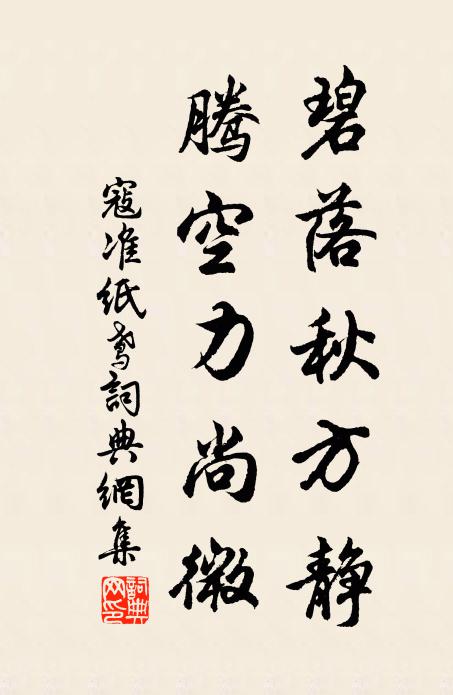 碧落秋方静
腾空力尚微
寇准纸鸢詞典網集
詞典网印